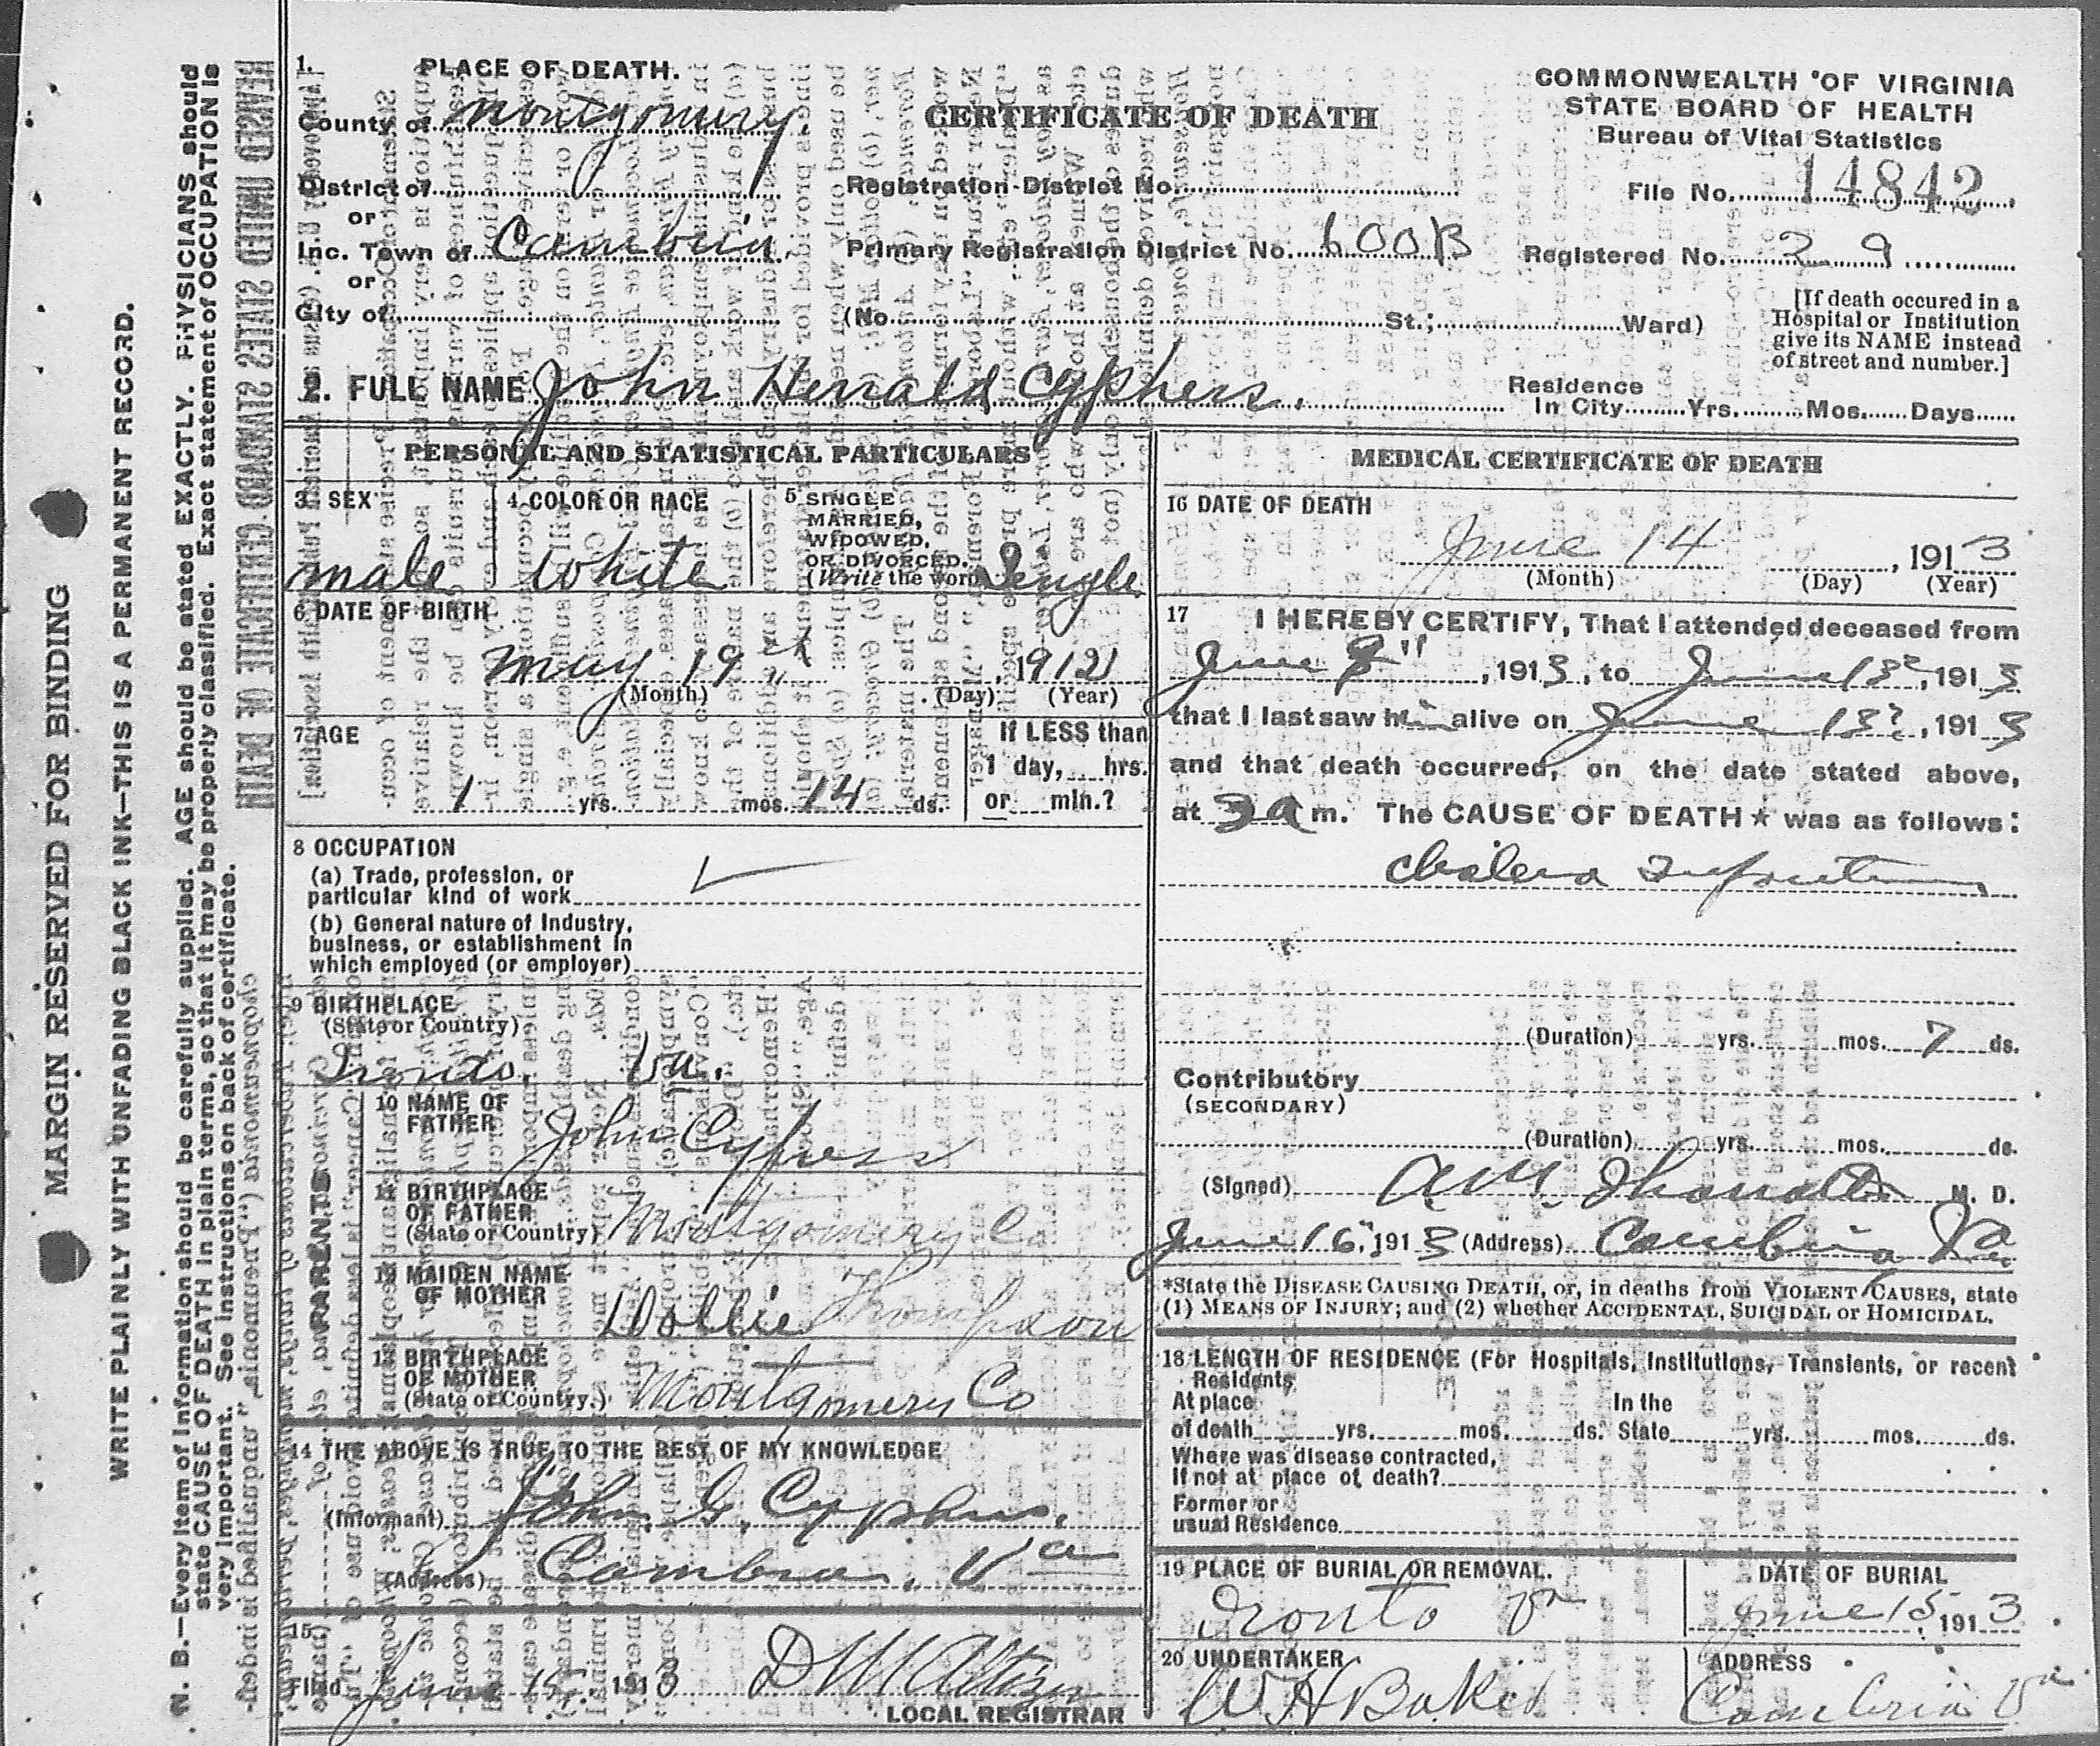 MARGIN RESERVED FOR BINDING
WRITE PLAINLY WITH UNFADING BLACK INK—THIS IS A PERMANENT RECORD.
N. B.—Every item of information should be carefully supplied. AGE should be stated EXACTLY. PHYSICIANS should
state CAUSE OF DEATH in plain terms, so that it may be properly classified. Exact statement of OCCUPATION is
very important. See instructions on back of certificate.
REVISED UNITED STATES STANDARD CERTIFICATE OF DEATH
1. PLACE OF DEATH.
County of Montgomery.
District of
or
Inc. Town of Cambria
or
City of
CERTIFICATE OF DEATH
COMMONWEALTH OF VIRGINIA
STATE BOARD OF HEALTH
Bureau of Vital Statistics
Registration District No.
File No. 14842
Primary Registration District No. 600B
Registered No. 29
(No. St.; Ward)
[If death occured in a
Hospital or Institution
give its NAME instead
of street and number.]
2. FULL NAME John Herald Cyphers.
Residence
In City Yrs. Mos. Days
PERSONAL AND STATISTICAL PARTICULARS
3 SEX
male
4 COLOR OR RACE
White
5 SINGLE
MARRIED,
WIDOWED,
OR DIVORCED.
(Write the word) Single
6 DATE OF BIRTH
May 19th, 1912
(Month) (Day) (Year)
7 AGE
1 yrs. mos. 14 ds.
If LESS than
1 day, hrs.
or min.?
8 OCCUPATION
(a) Trade, profession, or
particular kind of work
(b) General nature of Industry,
business, or establishment in
which employed (or employer)
9 BIRTHPLACE
(State or Country)
Ironto, Va.
PARENTS
10 NAME OF
FATHER John Cypress
11 BIRTHPLACE
OF FATHER
(State or Country) Montgomery Co
12 MAIDEN NAME
OF MOTHER Dollie Thompson
13 BIRTHPLACE
OF MOTHER
(State or Country.) Montgomery Co
14 THE ABOVE IS TRUE TO THE BEST OF MY KNOWLEDGE
(Informant) John G. Cyphers.
(Address) Cambria, Va
15
Filed June 15, 1913 D W Altizer
LOCAL REGISTRAR
MEDICAL CERTIFICATE OF DEATH
16 DATE OF DEATH
June 14, 1913
(Month) (Day) (Year)
17 I HEREBY CERTIFY, That I attended deceased from
June 8", 1913, to June 13, 1913
that I last saw him alive on June 13, 1913
and that death occurred, on the date stated above,
at 3 a m. The CAUSE OF DEATH* was as follows:
Cholera Infantum
(Duration) yrs. mos. 7 ds.
Contributory
(SECONDARY)
(Duration) yrs. mos. ds.
(Signed) M. D.
June 16, 1913 (Address) Cambria Va
*State the DISEASE CAUSING DEATH, or, in deaths from VIOLENT CAUSES, state
(1) MEANS OF INJURY; and (2) whether ACCIDENTAL, SUICIDAL or HOMICIDAL.
18 LENGTH OF RESIDENCE (For Hospitals, Institutions, Transients, or recent
Residents
At place In the
of death yrs. mos. ds. State yrs. mos. ds.
Where was disease contracted,
If not at place of death?
Former or
usual Residence
19 PLACE OF BURIAL OR REMOVAL.
Ironto Va
DATE OF BURIAL
June 15, 1913
20 UNDERTAKER
W H Baker
ADDRESS
Cambria Va